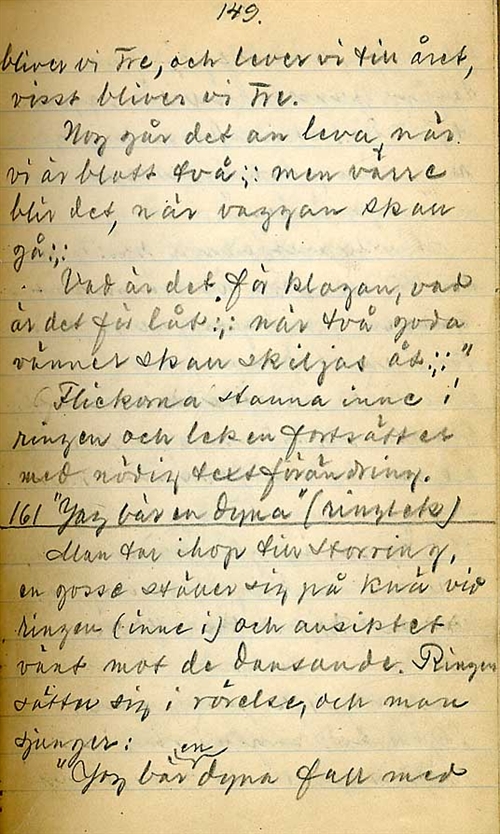 149.
bliver vi Tre, och lever vi till året,
visst bliver vi Tre.
Nog går det an leva, när
vi är blott två ;: men värre
blir det, när vaggan skall
gå :;:
Vad är det för klagan, vad
är det för låt :;: när två goda
vänner skall skiljas åt :;:"
Flickorna stanna inne i
ringen och leken fortsättes
med nödig textförändring.
161 "Jag bär en dyna" (ringlek)
Man tar ihop till storring,
en gosse ställer sig på knä vid
ringen (inne i) och ansiktet
vänt mot de dansande. Ringen
sätter sig i rörelse, och man
sjunger:
"Jag bär en dyna full med